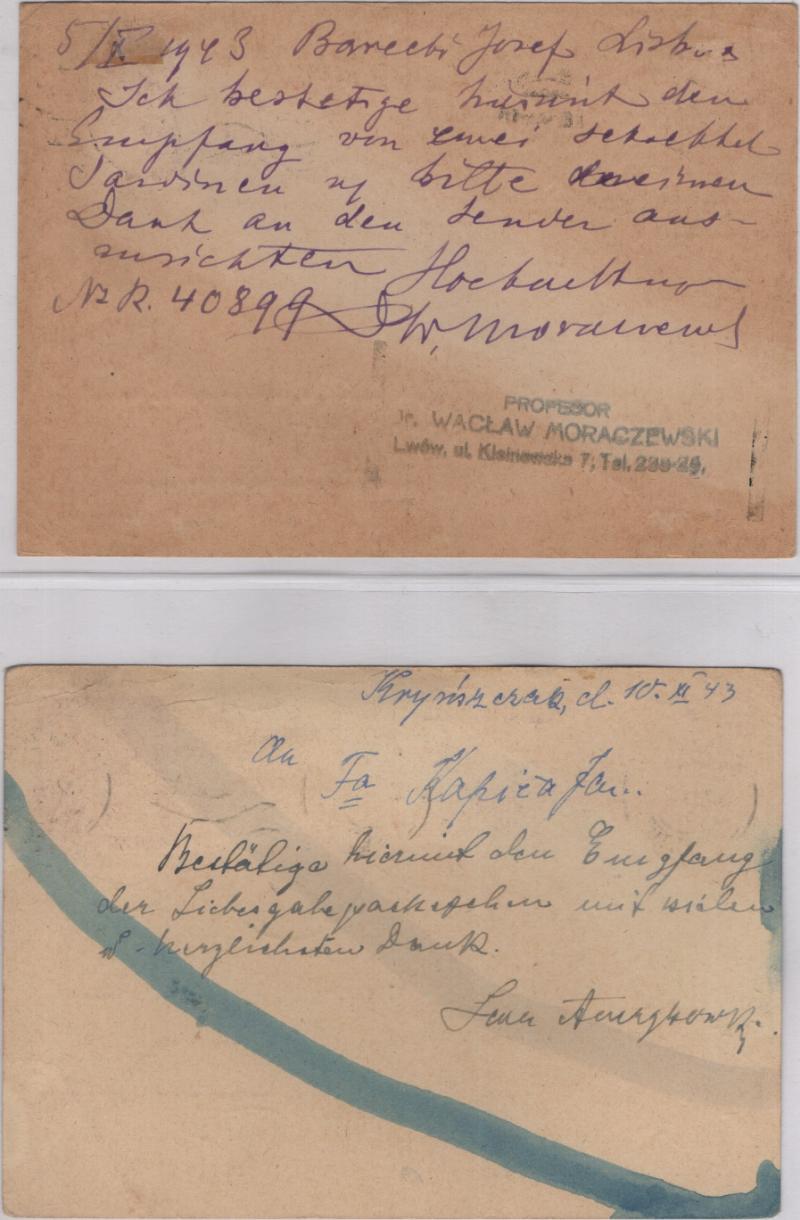 5/X 1943 Barecki Josef Lisboa
Ich bestetige hiermit den
Empfang von zwei schachtel
Sardinen u bitte meinen
Dank an den sender aus-
zurichten Hochachtung
Nr R. 40899 Dr W. Moraczewski
PROFESOR
Dr. WACŁAW MORACZEWSKI
Lwów, ul. 7, Tel.
d. 10. XI 43
An
Fa Kapica Jan..
Bestätige hiermit den Empfang
der Liebesgabepacketchen mit vielen
u herzlichsten Dank.